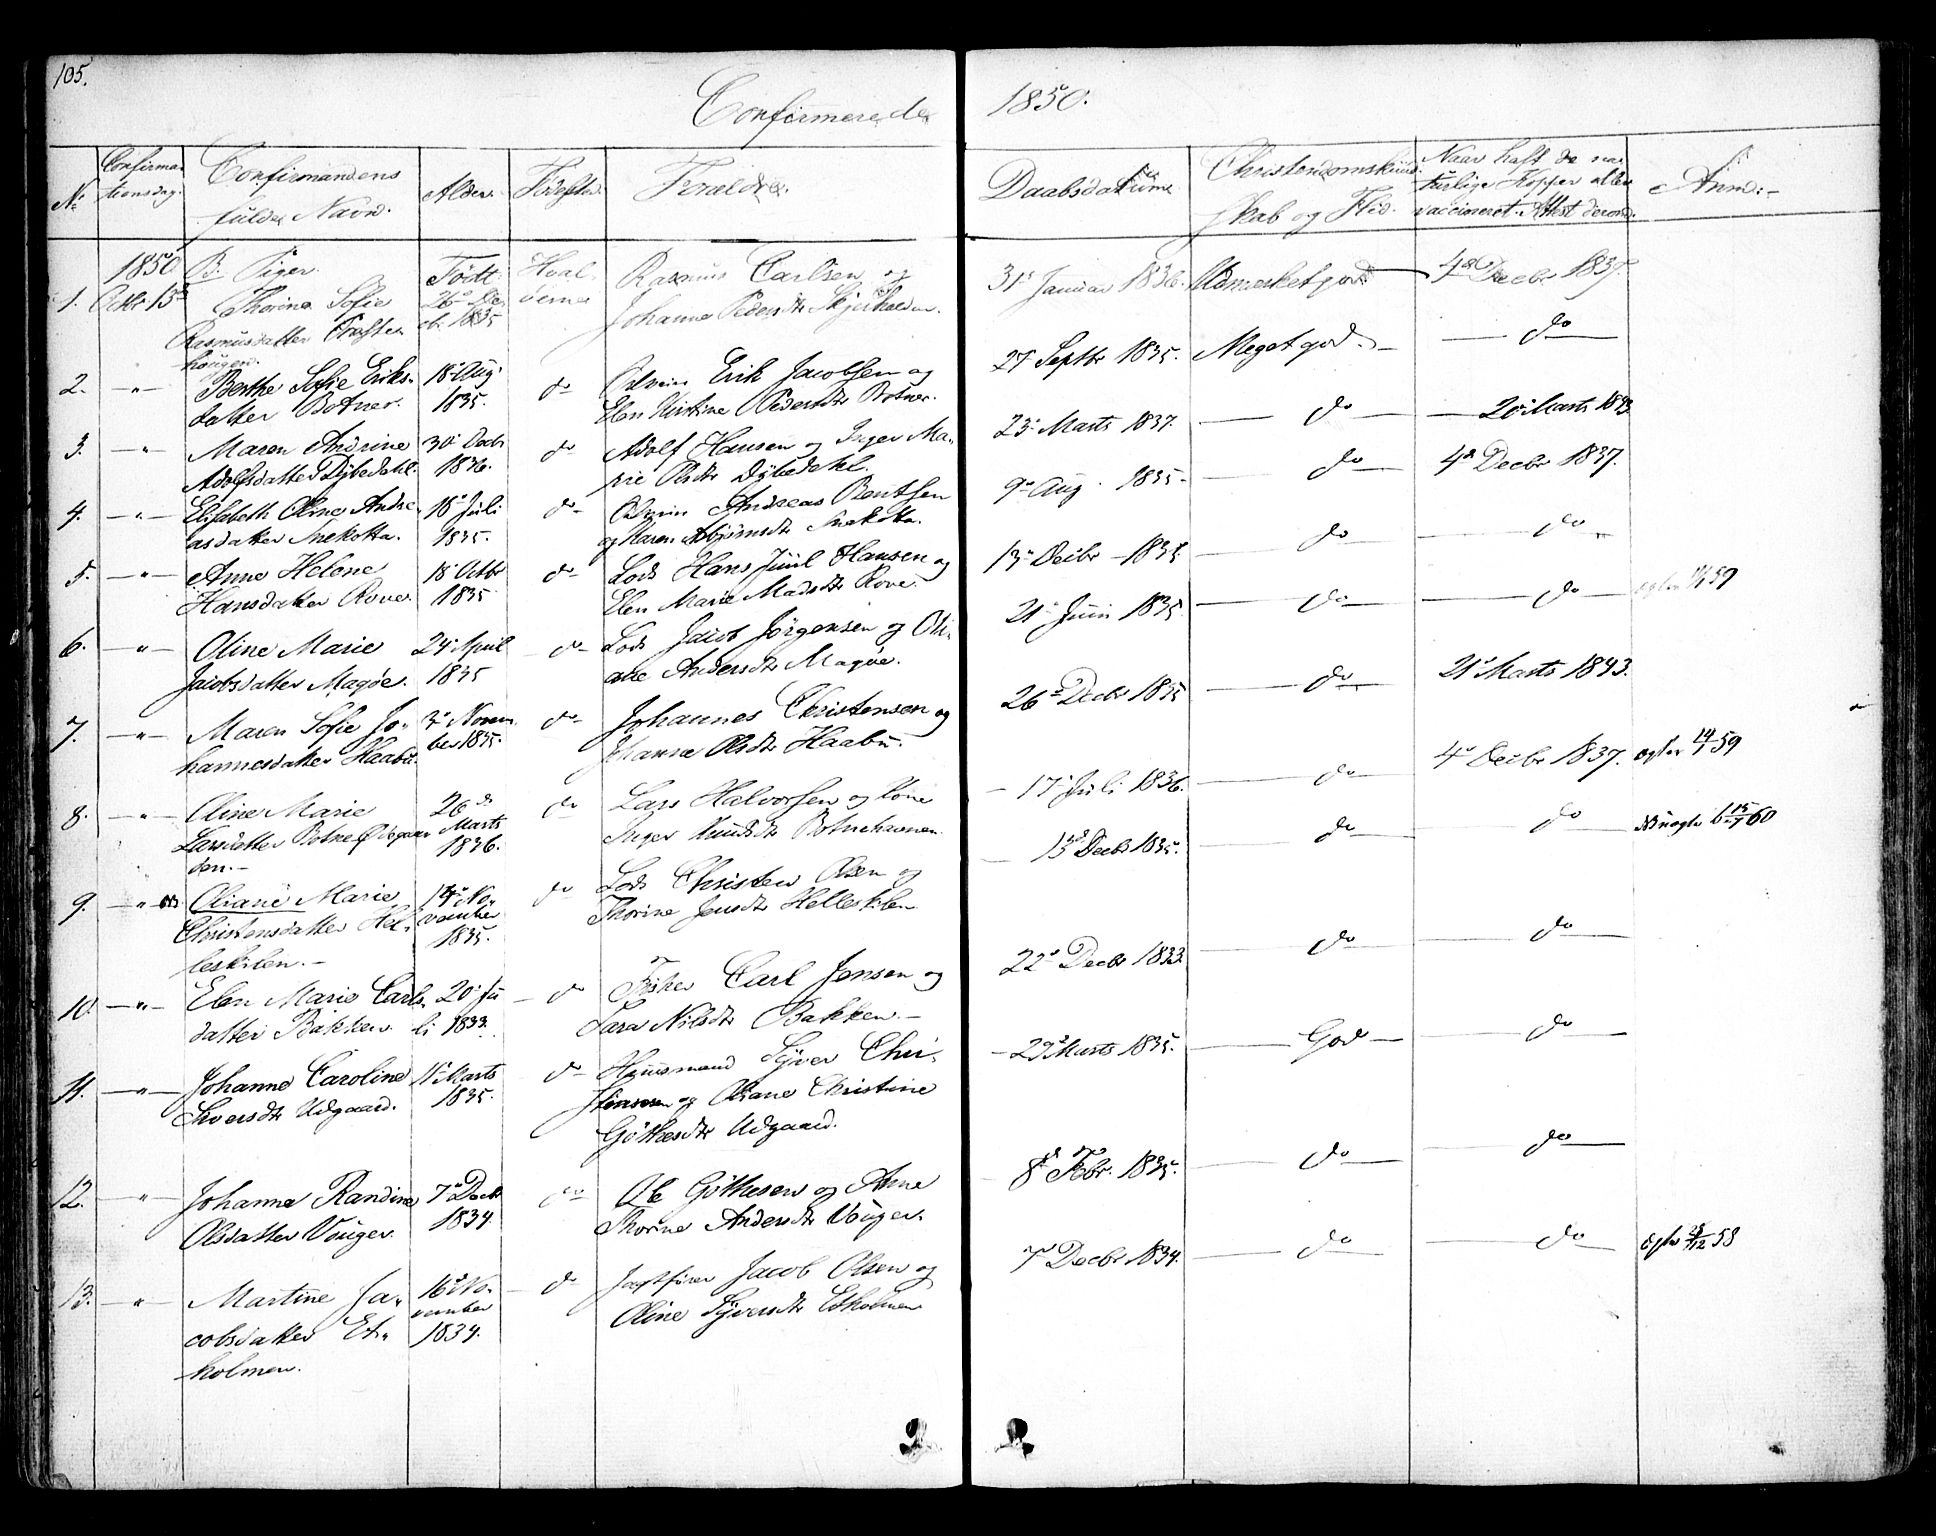 105.
Confirmerede 1850.
No
Confirmationsdag.
Confirmandens
fulde Navn.
Alder.
Fødested
Forældre.
Daabsdatum
Christendomskundskab og Flid.
Naar haft de naturlige Kopper eller
vaccineret. Attest derom.
Anm:
1850 B. Piger. Født Hvaløerne
1. Octbr 13de Thorine Sofie
Rasmusdatter
26de De
cbr 1835
Rasmus Carlsen og
Johanne Pedersdtr Skjærhalden.
31te Januar 1836. Udmærket god 4de Decbr 1837.
2. " Berthe Sofie Eriks-
datter Botner.
18de Aug.
1835.
do
Erik Jacobsen og
Elen Kirstine Pedersdtr Botner.
27 Septbr 1835. Meget god. do
3. " Maren Andrine
Adolfsdatter Dybedahl.
30te Decbr
1836.
do
Adolf Hansen og Inger Ma-
rie Olsdtr Dybedahl.
23de Marts 1837. do 20de Marts 1843
4. " Elisabeth Oline Andre-
asdatter Snekotta.
18de Juli
1835.
do
Andreas Bentsen
og Karen Snekotta.
9de Aug. 1835. do 4de Decbr 1837.
5. " Anne Helene
Hansdatter Rove.
18 Octbr
1835
do
Lods Hans Juul Hansen og
Elen Marie Madsdtr Rove.
13de Decbr 1835. do do
6. " Oline Marie
Jacobsdatter Magøe.
24de April
1835
do
Lods Jacob Jørgensen og Oli-
ane Andersdtr Magøe.
21de Juni 1835. do do
7. " Maren Sofie Jo-
hannesdatter Haabu.
3de Novem-
ber 1835.
do
Johannes Christensen og
Johanne Olsdtr Haabu.
26de Decbr 1835 do 21de Marts 1843.
8. " Oline Marie
Larsdatter Botne Ødegaar-
den.
26de
Marts
1836.
do
Lars Halvorsen og Kone
Inger Knudsdtr Botnehavnen
17de Juli 1836. do 4de Decbr 1837. 14/1 59
9. " Oliane Marie
Christensdatter Hel-
leskilen.
14de No-
vember
1835.
do
Lods Christen Olsen og
Thorine Jensdtr Helleskilen
13de Decbr 1835. do do 60
10. " Elen Marie Carls-
datter Bakken.
20de Ju-
li 1833.
do
Fisker Carl Jensen og
Sara Nilsdtr Bakken.
22de Decbr 1833. do do
11. " Johanne Caroline
Siversdtr Udgaard.
11te Marts
1835.
do
Huusmand Syver Chri-
stensen og Oliane Christine
Göthesdtr Udgaard.
29de Marts 1835. God do
12. " Johanne Randine
Olsdatter Vouger.
7de Decbr
1834.
do
Ole Göthesen og Anne
Thorine Andersdtr Vouger.
8de Febr. 1835. do do
13. " Martine Ja-
cobsdatter Et-
holmen.
16de No-
vember
1834.
do
Jacob Olsen og
Oline Syversdtr Etholmen
7de Decbr 1834. do do 58